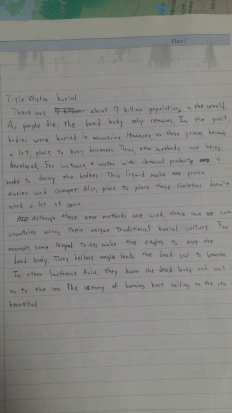 Date:
Title: Water burial
There are about 7 billion population in the world.
As people die, the dead body only remains. In the past,
bodies were buried in mountains. However as those graves became
a lot, place to bury becomes Thus, new methods are being
developed. For instance, water with chemical is
make to the bodies. This liquid make process
easier and cheaper. Also, place to place those skeletons doesn't
need a lot of space.
Although these new methods are used, there are
countries using their unique traditional burial culture. For
example, some Nepal tribes make the eagles to eat the
dead body. They believe eagle leads the dead soul to heaven.
In other Southeast Asia, they burn the dead body and sail
to the sea. The scenery of burning boat sailing to the sea is
beautiful.